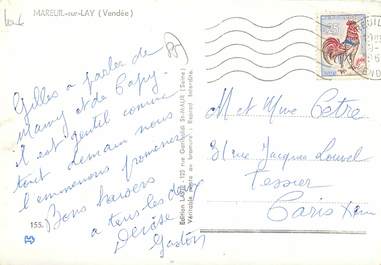 MAREUIL-sur-LAY (Vendée)
Gilles a parler de
Mamy et de Papy.
il est gentil comme
tout demain nous
l'emmenons promener.
Bons baisers
a tous les deux
Denise
Gaston
155.
Edition LAPIE - 123 rue Garibaldi St-MAUR (Seine)
Véritable photo au bromure - Reproduct. Interdite
M et Mme Petre
31 rue Jacques Louvel
Tessier
Paris XVème